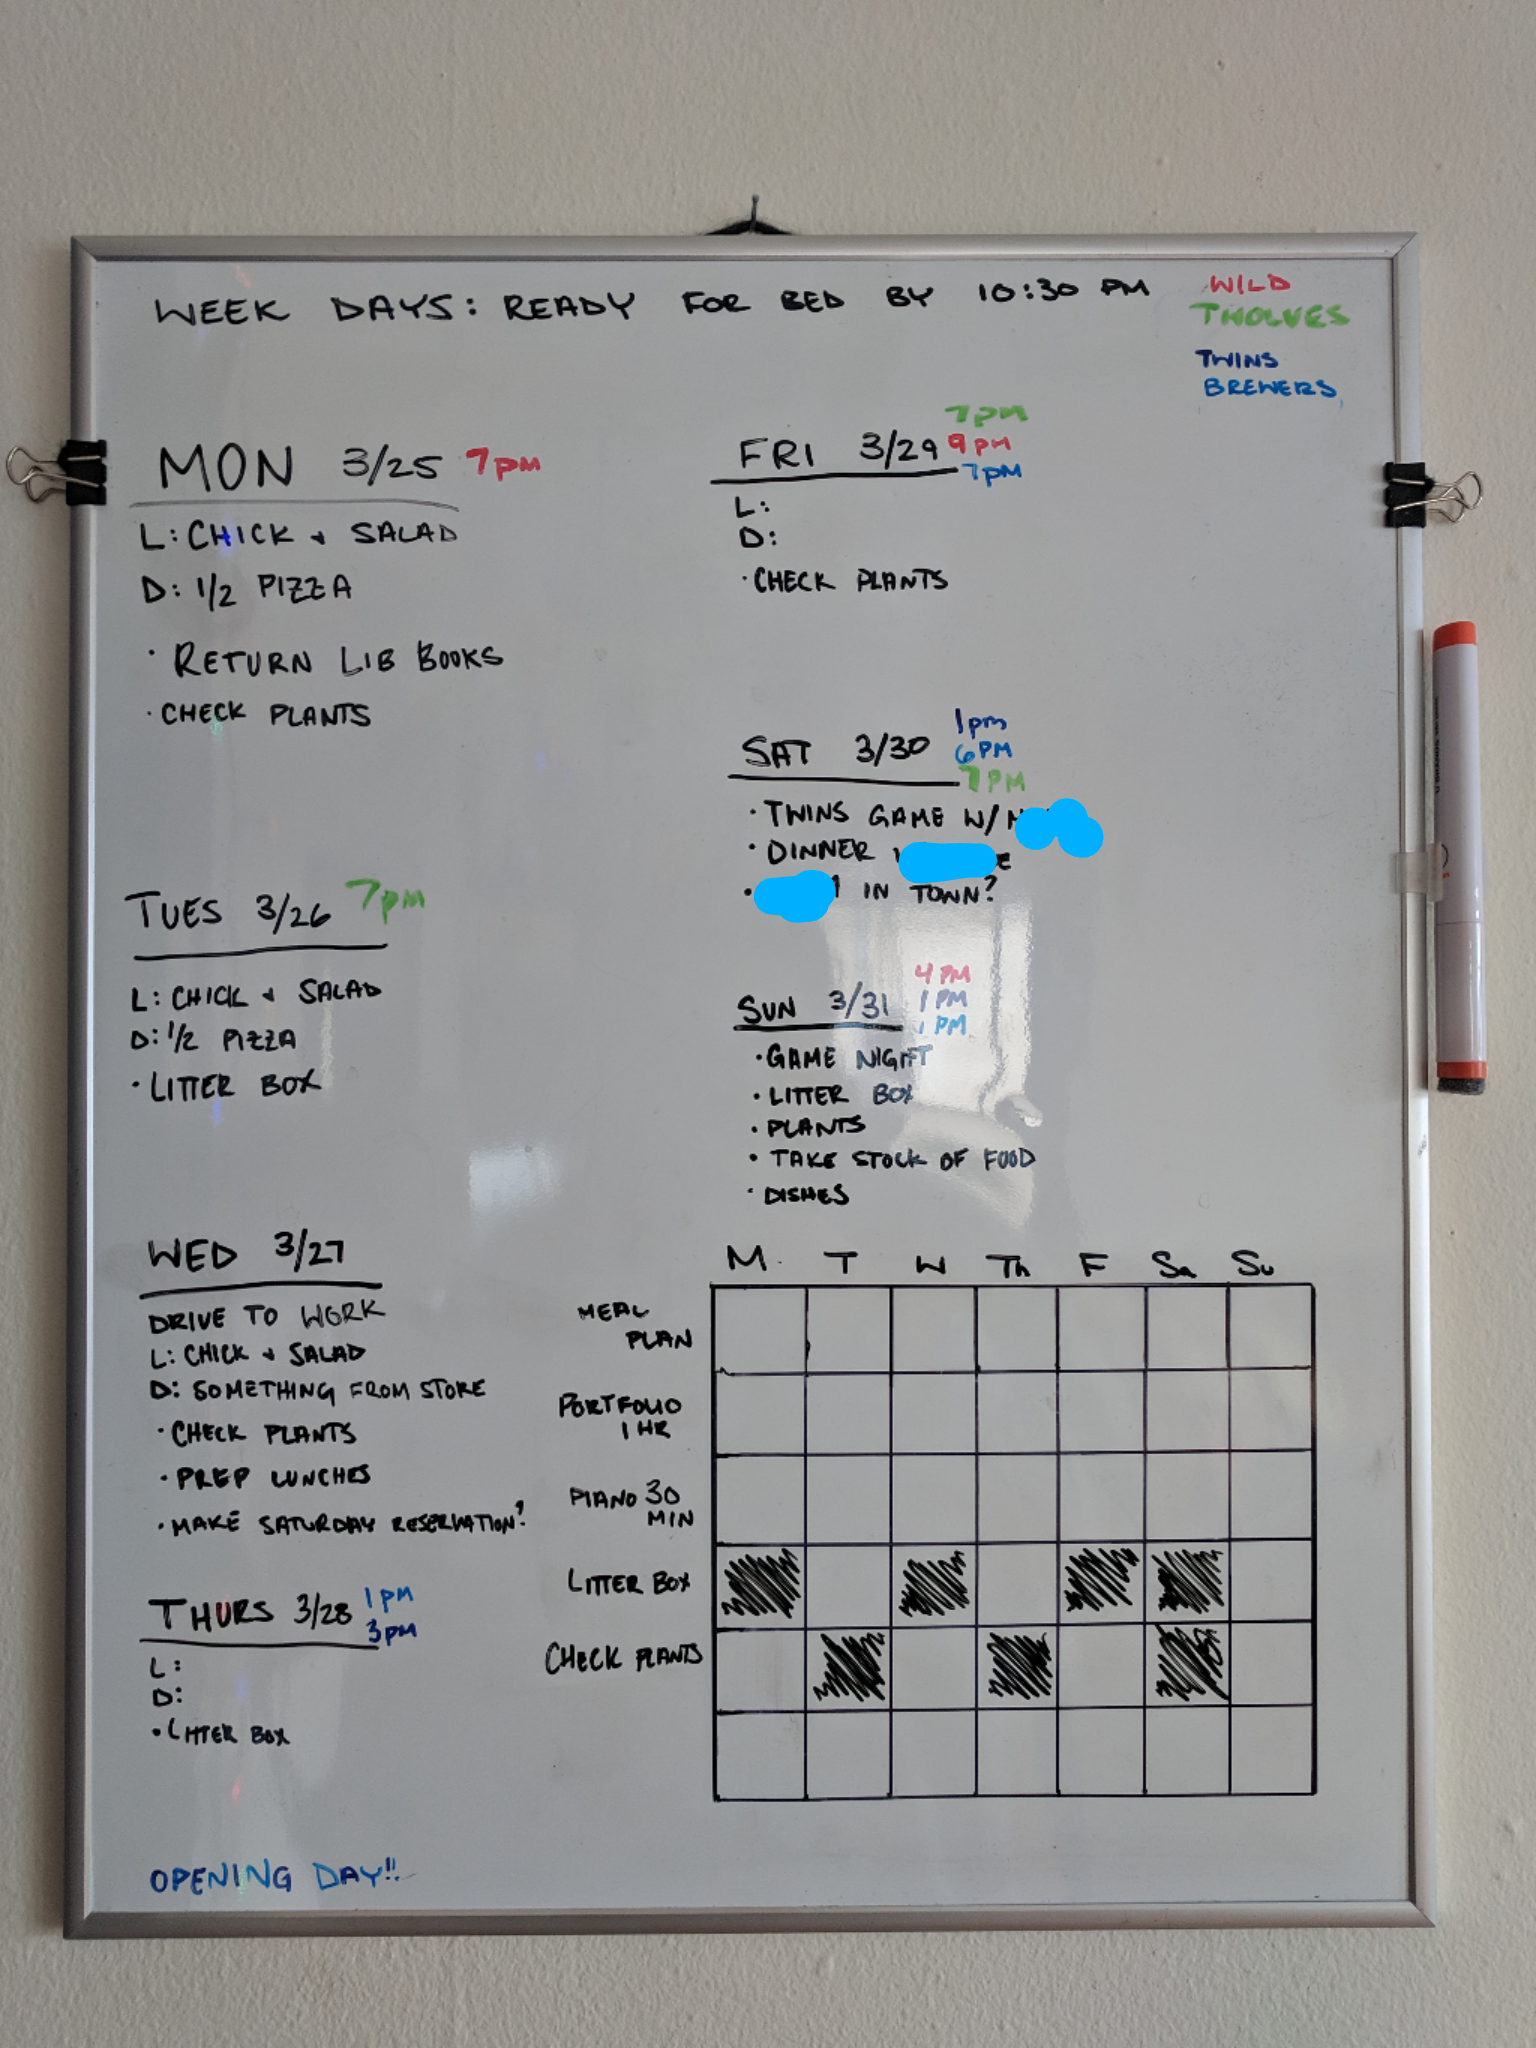 WEEK DAYS: READY FOR BED BY 10:30 PM
WILD
TWOLVES
TWINS
BREWERS
MON 3/25 7pm
L: CHICK + SALAD
D: 1/2 PIZZA
· RETURN LIB BOOKS
· CHECK PLANTS
TUES 3/26 7pm
L: CHICK + SALAD
D: 1/2 PIZZA
· LITTER BOX
WED 3/27
DRIVE TO WORK
L: CHICK + SALAD
D: SOMETHING FROM STORE
· CHECK PLANTS
· PREP LUNCHES
· MAKE SATURDAY RESERVATION?
THURS 3/28 1pm
3pm
L:
D:
· LITTER BOX
OPENING DAY!!
7pm
FRI 3/29 9pm
7pm
L:
D:
· CHECK PLANTS
1pm
SAT 3/30 6PM
7PM
· TWINS GAME W/
· DINNER
· IN TOWN?
4 PM
SUN 3/31 1 PM
1 PM
· GAME NIGHT
· LITTER BOX
· PLANTS
· TAKE STOCK OF FOOD
· DISHES
M T W Th F Sa Su
MEAL
PLAN
PORTFOLIO
1 HR
PIANO 30
MIN
LITTER BOX
CHECK PLANTS